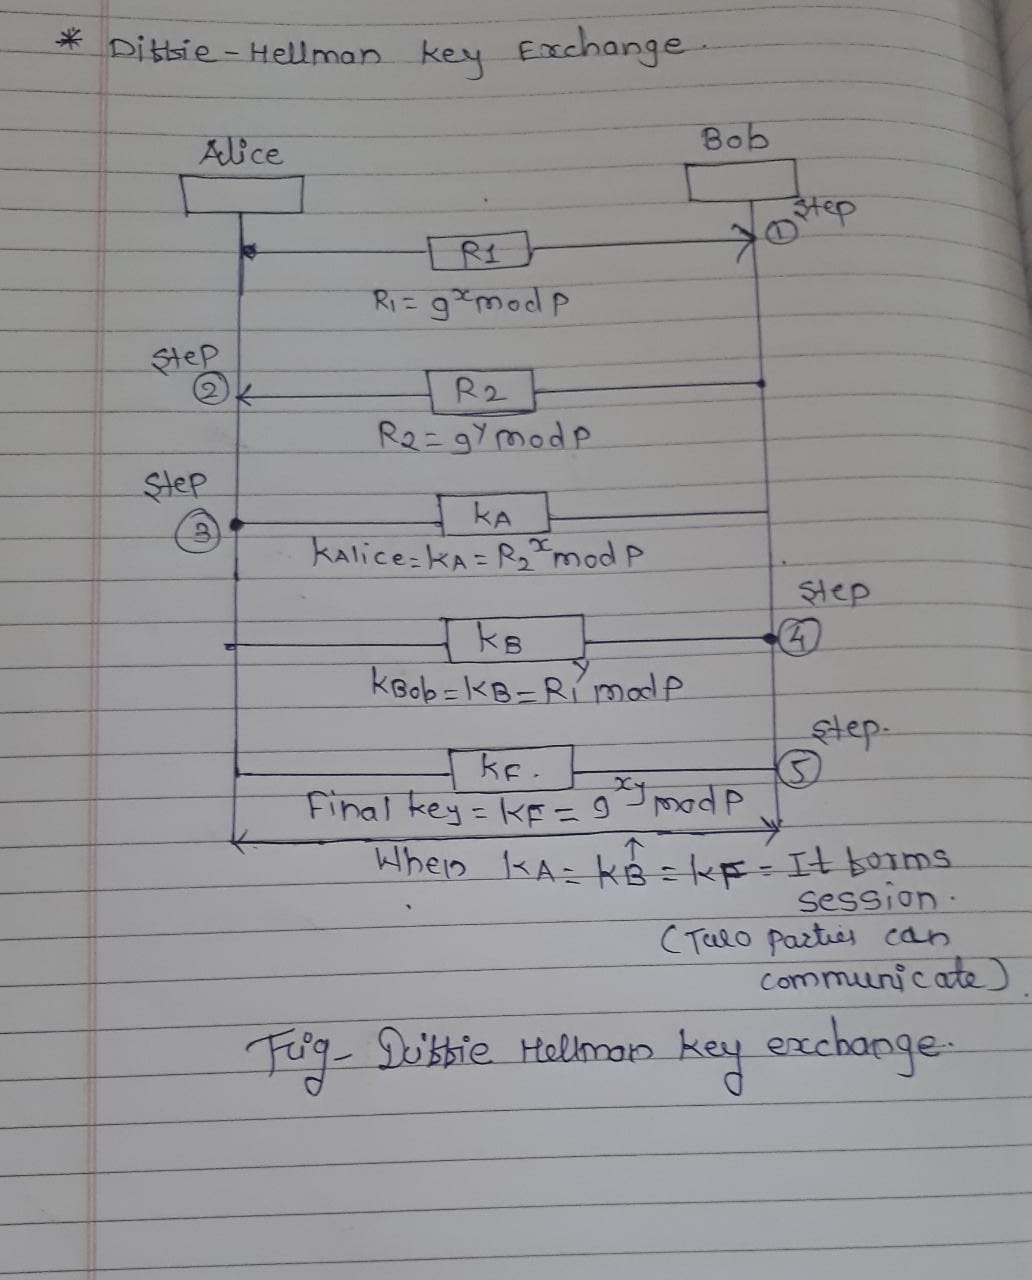 * Diffie-Hellman key Exchange.
Alice
Bob
Step
R1
①
R₁ = gˣ mod P
Step
② R2
R2 = gʸ mod P
Step
③ KA
KAlice = KA = R₂ˣ mod P
Step
KB ④
KBob = KB = R₁ʸ mod P
Step.
KF. ⑤
Final key = KF = gˣʸ mod P
↑
When KA = KB = KF = It forms
session.
(Two parties can
communicate).
Fig- Diffie Hellman key exchange.